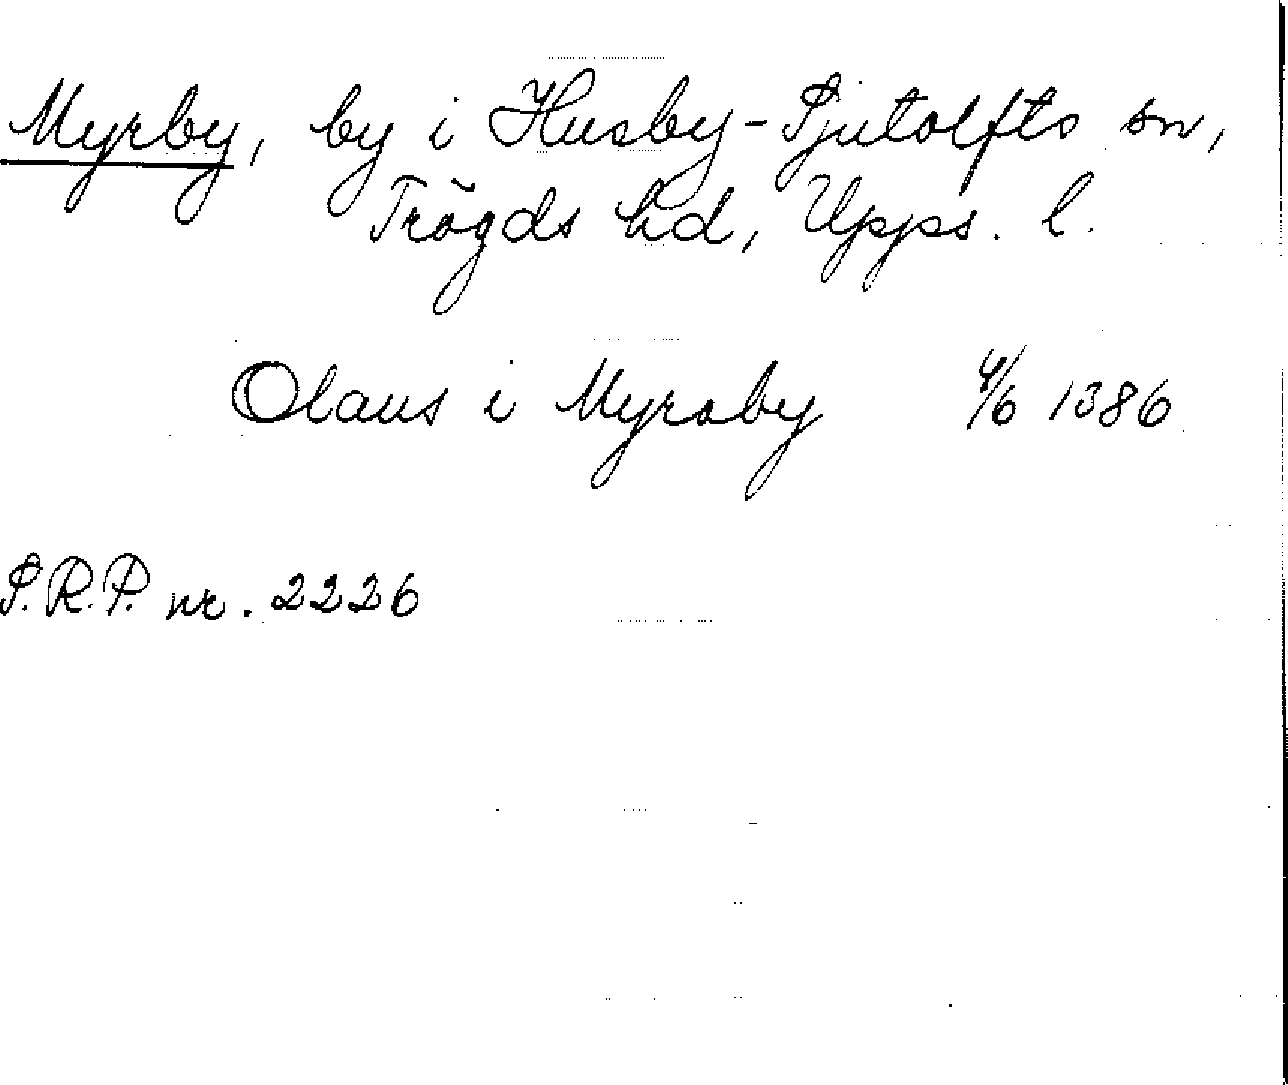 Myrby, by i Husby-Sjutolfts sn,
Trögds hd, Upps. l.
Olaus i Myraby 4/6 1386
S.R.P. nr. 2226